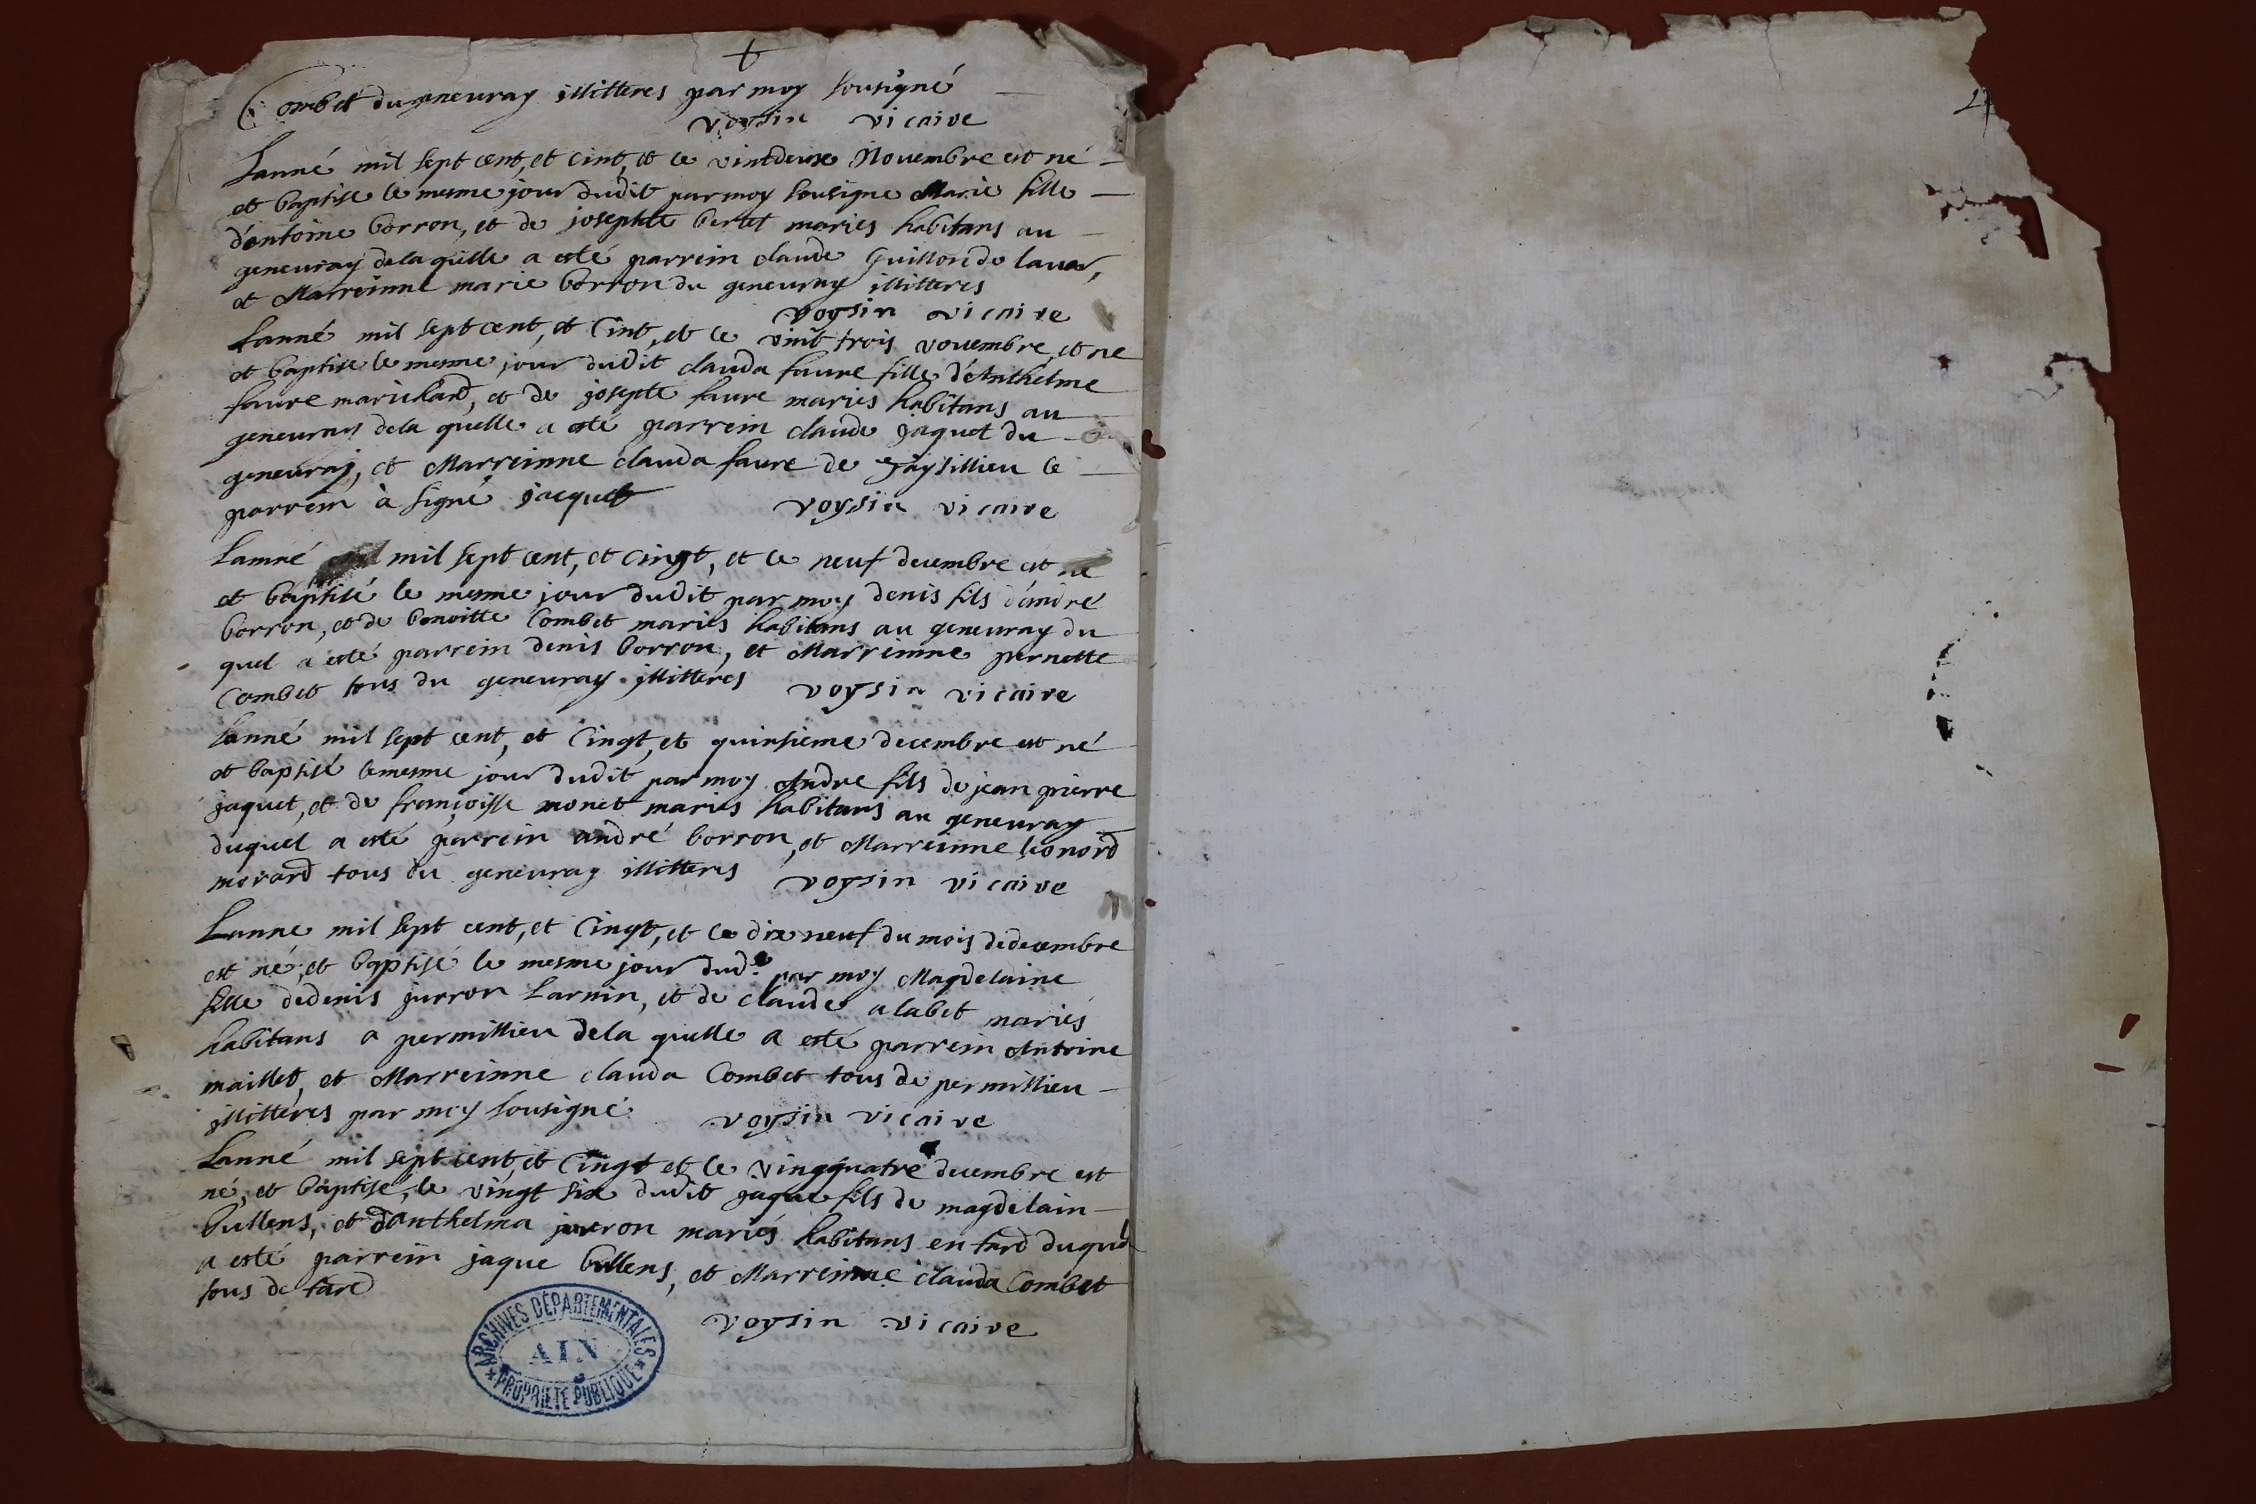 +
Combet du geneuray illitteres par moy sousigné
voysin vicaire
Lanné mil sept cent, et cint, et ce vintdeux Novembre est né
et baptise le mesme jour dudit par moy sousigne Marie fille
d'antoine borron, et de josephte bertet mariés habitans au
geneuray de la quelle a esté parrein claude Guillon de lavor,
et Marreinne marie borron du geneuray illitteres
voysin vicaire
Lanné mil sept cent, et Cint, et ce vint trois novembre, et ne
et baptise le mesme jour dudit clauda faure fille d'Anthelme
faure marichard, et de josepte faure mariés habitans au
geneuray de la quelle a esté parrein claude jaquet du
geneuray, et Marreinne clauda faure de Faysillieu le
parrein à signé jacquet
voysin vicaire
Lanné mil sept cent, et cingt, et ce neuf decembre est ne
et baptisé le mesme jour dudit par moy denis fils d'andré
borron, et de benoitte Combet mariés habitans au geneuray du
quel a esté parrein denis borron, et Marreinne pernette
Combet tous du geneuray illitteres
voysin vicaire
Lanné mil sept cent, et Cingt, et quinsieme decembre est né
et baptisé le mesme jour dudit par moy Andre fils de jean pierre
jaquet, et de françoisse monet mariés habitans au geneuray
duquel a esté parrein andré borron, et Marreinne leonord
morard tous du geneuray illitteres
voysin vicaire
Lanne mil sept cent, et Cingt, et ce dix neuf du mois de decembre
est né, et baptisé le mesme jour dud. par moy Magdelaine
fille de denis jurron Larnin, et de claude alabet mariés
habitans a permillieu de la quelle a esté parrein Antoine
maillet, et Marreinne clauda Combet tous de permillieu
illitteres par moy sousigné
voysin vicaire
Lanné mil sept cent, et Cingt et le vingquatre decembre est
né, et baptise, le vingt six dudit jaque fils de magdelain
bullens, et d'anthelma jurron mariés habitans en tard duquel
a esté parrein jaque bullens, et Marreinne clauda Combet
tous de tard
voysin vicaire
ARCHIVES DÉPARTEMENTALES
AIN
PROPRIÉTÉ PUBLIQUE